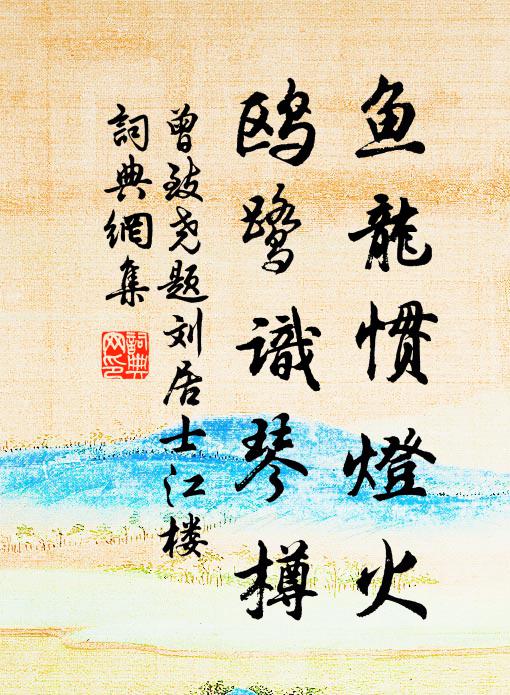 鱼龍惯燈火
鸥鹭識琴樽
曾致尧题刘居士江楼
詞典網集
詞典网印